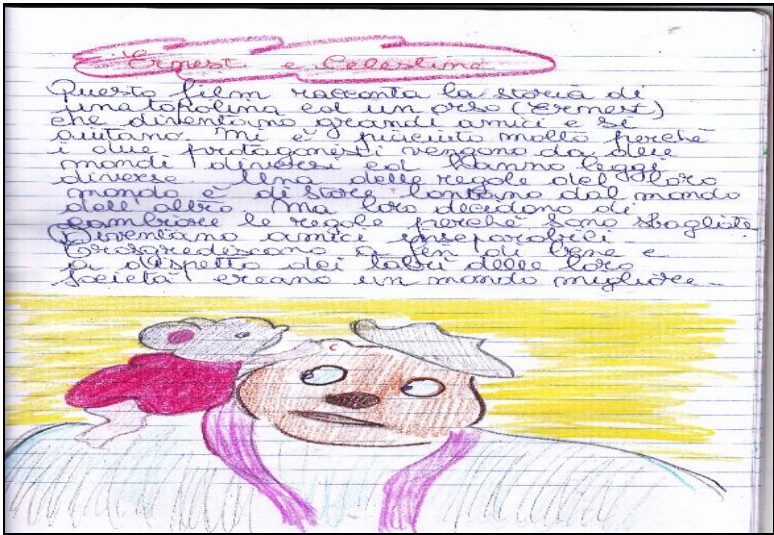 Ernest e Celestine
Questo film racconta la storia di
una topolina ed un orso (Ernest)
che diventano grandi amici e si
aiutano. Mi è piaciuto molto perchè
i due protagonisti vengono da due
mondi diversi ed hanno leggi
diverse. Una delle regole del loro
mondo è di stare lontano dal mondo
dall'altro. Ma loro decidono di
cambiare le regole perchè sono sbagliate.
Diventano amici inseparabili
trasgrediscono a fin di bene e
a dispetto dei tabù delle loro
società creano un mondo migliore.